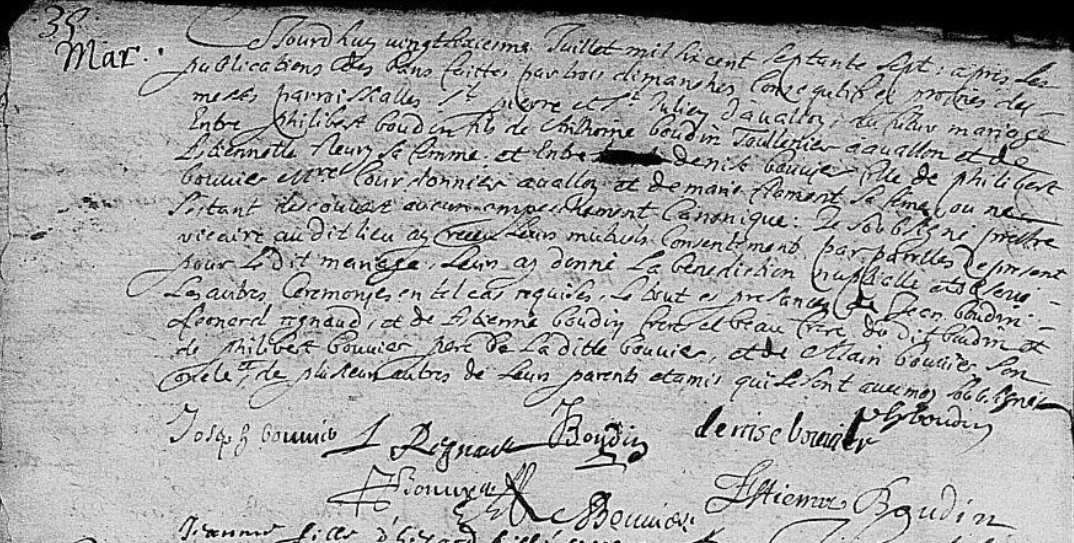 38.
Mar.
Jourdhuy vingtsixieme Juillet mil six cent septante sept : apres les
publications des bans faittes par trois dimanches consequtifs es prosnes des
messes parroissialles St pierre et St Julien d'avallon, du futur mariage
Entre philibert boudin fils de Anthoine boudin Tonllenier avallon et de
Estiennette fleury sa femme. et Entre denise bouvier fille de philibert
bouvier court avallon et de marie sa feme, ou ne
sestant descouvert aucun empeschement Canonique : Je soubsigné prestre
vicaire audit lieu ay receu leurs mutuels Consentement par parolles de present
pour Le dit mariage, Leurs ay donné La benediction nuptialle et observé
Les autres Ceremonies en tel cas requises, Le tout es presances de Jean boudin
Leonard regnaud, et de Estienne boudin frere et beau frere du dit boudin et
de philibert bouvier pere de La ditte bouvier, et de bouvier son
oncle et de plusieurs autres de Leurs parents et amis qui se sont avec moy soubsignez
Joseph bouvier L Regnaud Boudin denise bouvier phboudin
Bouvier Bouvier Estienne Boudin
Jeanne fille